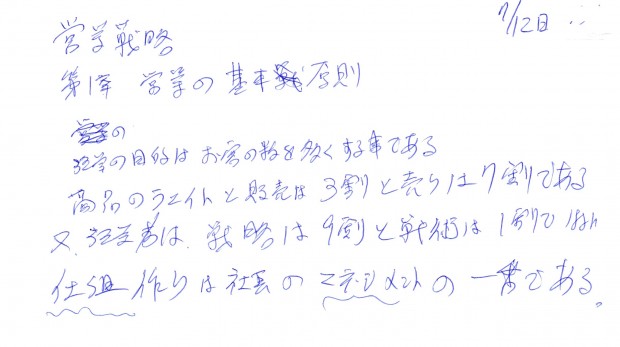 7/12日
営業戦略
第1章 営業の基本原則
営業の
経営の目的はお客の数を多くする事である
商品のウエイトと販売は3割と売りは7割である
又、経営者は、戦略は9割と戦術は1割で
仕組作りは社長のマネジメントの一番である。